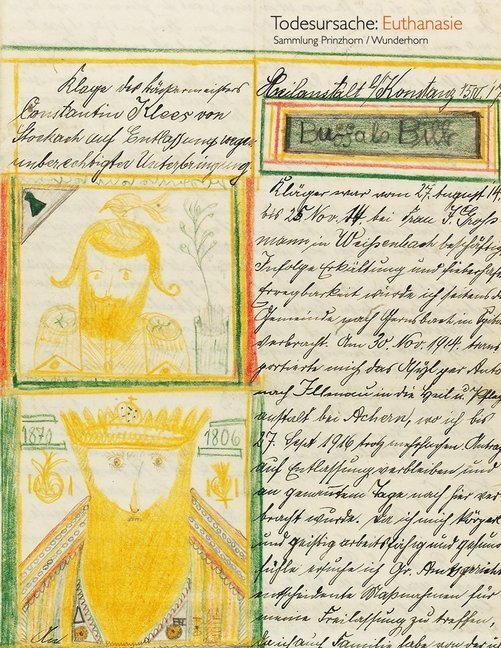 Todesursache: Euthanasie
Sammlung Prinzhorn / Wunderhorn
Klage des Bäckermeisters
Constantin Klees von
Stockach auf Entlassung wegen
unberechtigter Unterbringung
Heilanstalt b/Konstanz
Buffalo Bill
Kläger war vom 27. August 14.
bis 25 Nov. 14 bei Frau F. Groß
mann in Weisenbach beschäftigt
Infolge Erkältung und
Erregbarkeit wurde ich seitens d
Gemeinde nach Gernsbach in
verbracht. Am 30. Nov. 1914. trans
portierte mich das per Auto
nach Illenau in die Heil u Pfleg
anstalt bei Achern, wo ich bis
27. Sept 1916 trotz mehrfachen Antra
auf Entlassung verbleiben und
an genanntem Tage nach hier ver
bracht wurde. Da ich mich körper
und geistig arbeitsfähig und gesund
fühle ersuche ich Gr. Amtsgericht
entscheidente Maßnahmen für
meine Freilassung zu treffen,
da ich auch Familie habe von der
1871
1806